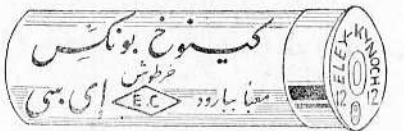 كينوخ بونكس
خرطوش
معبا ببارود E.C إى سى
ELEY-KYNOCH
12 12